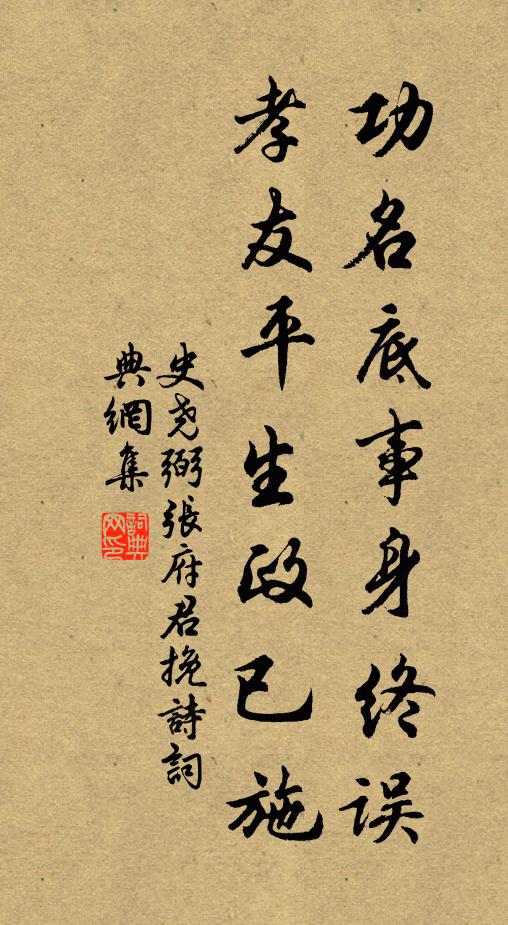 功名底事身終误
孝友平生政已施
史尧弼張府君挽詩詞
典網集
詞典網印